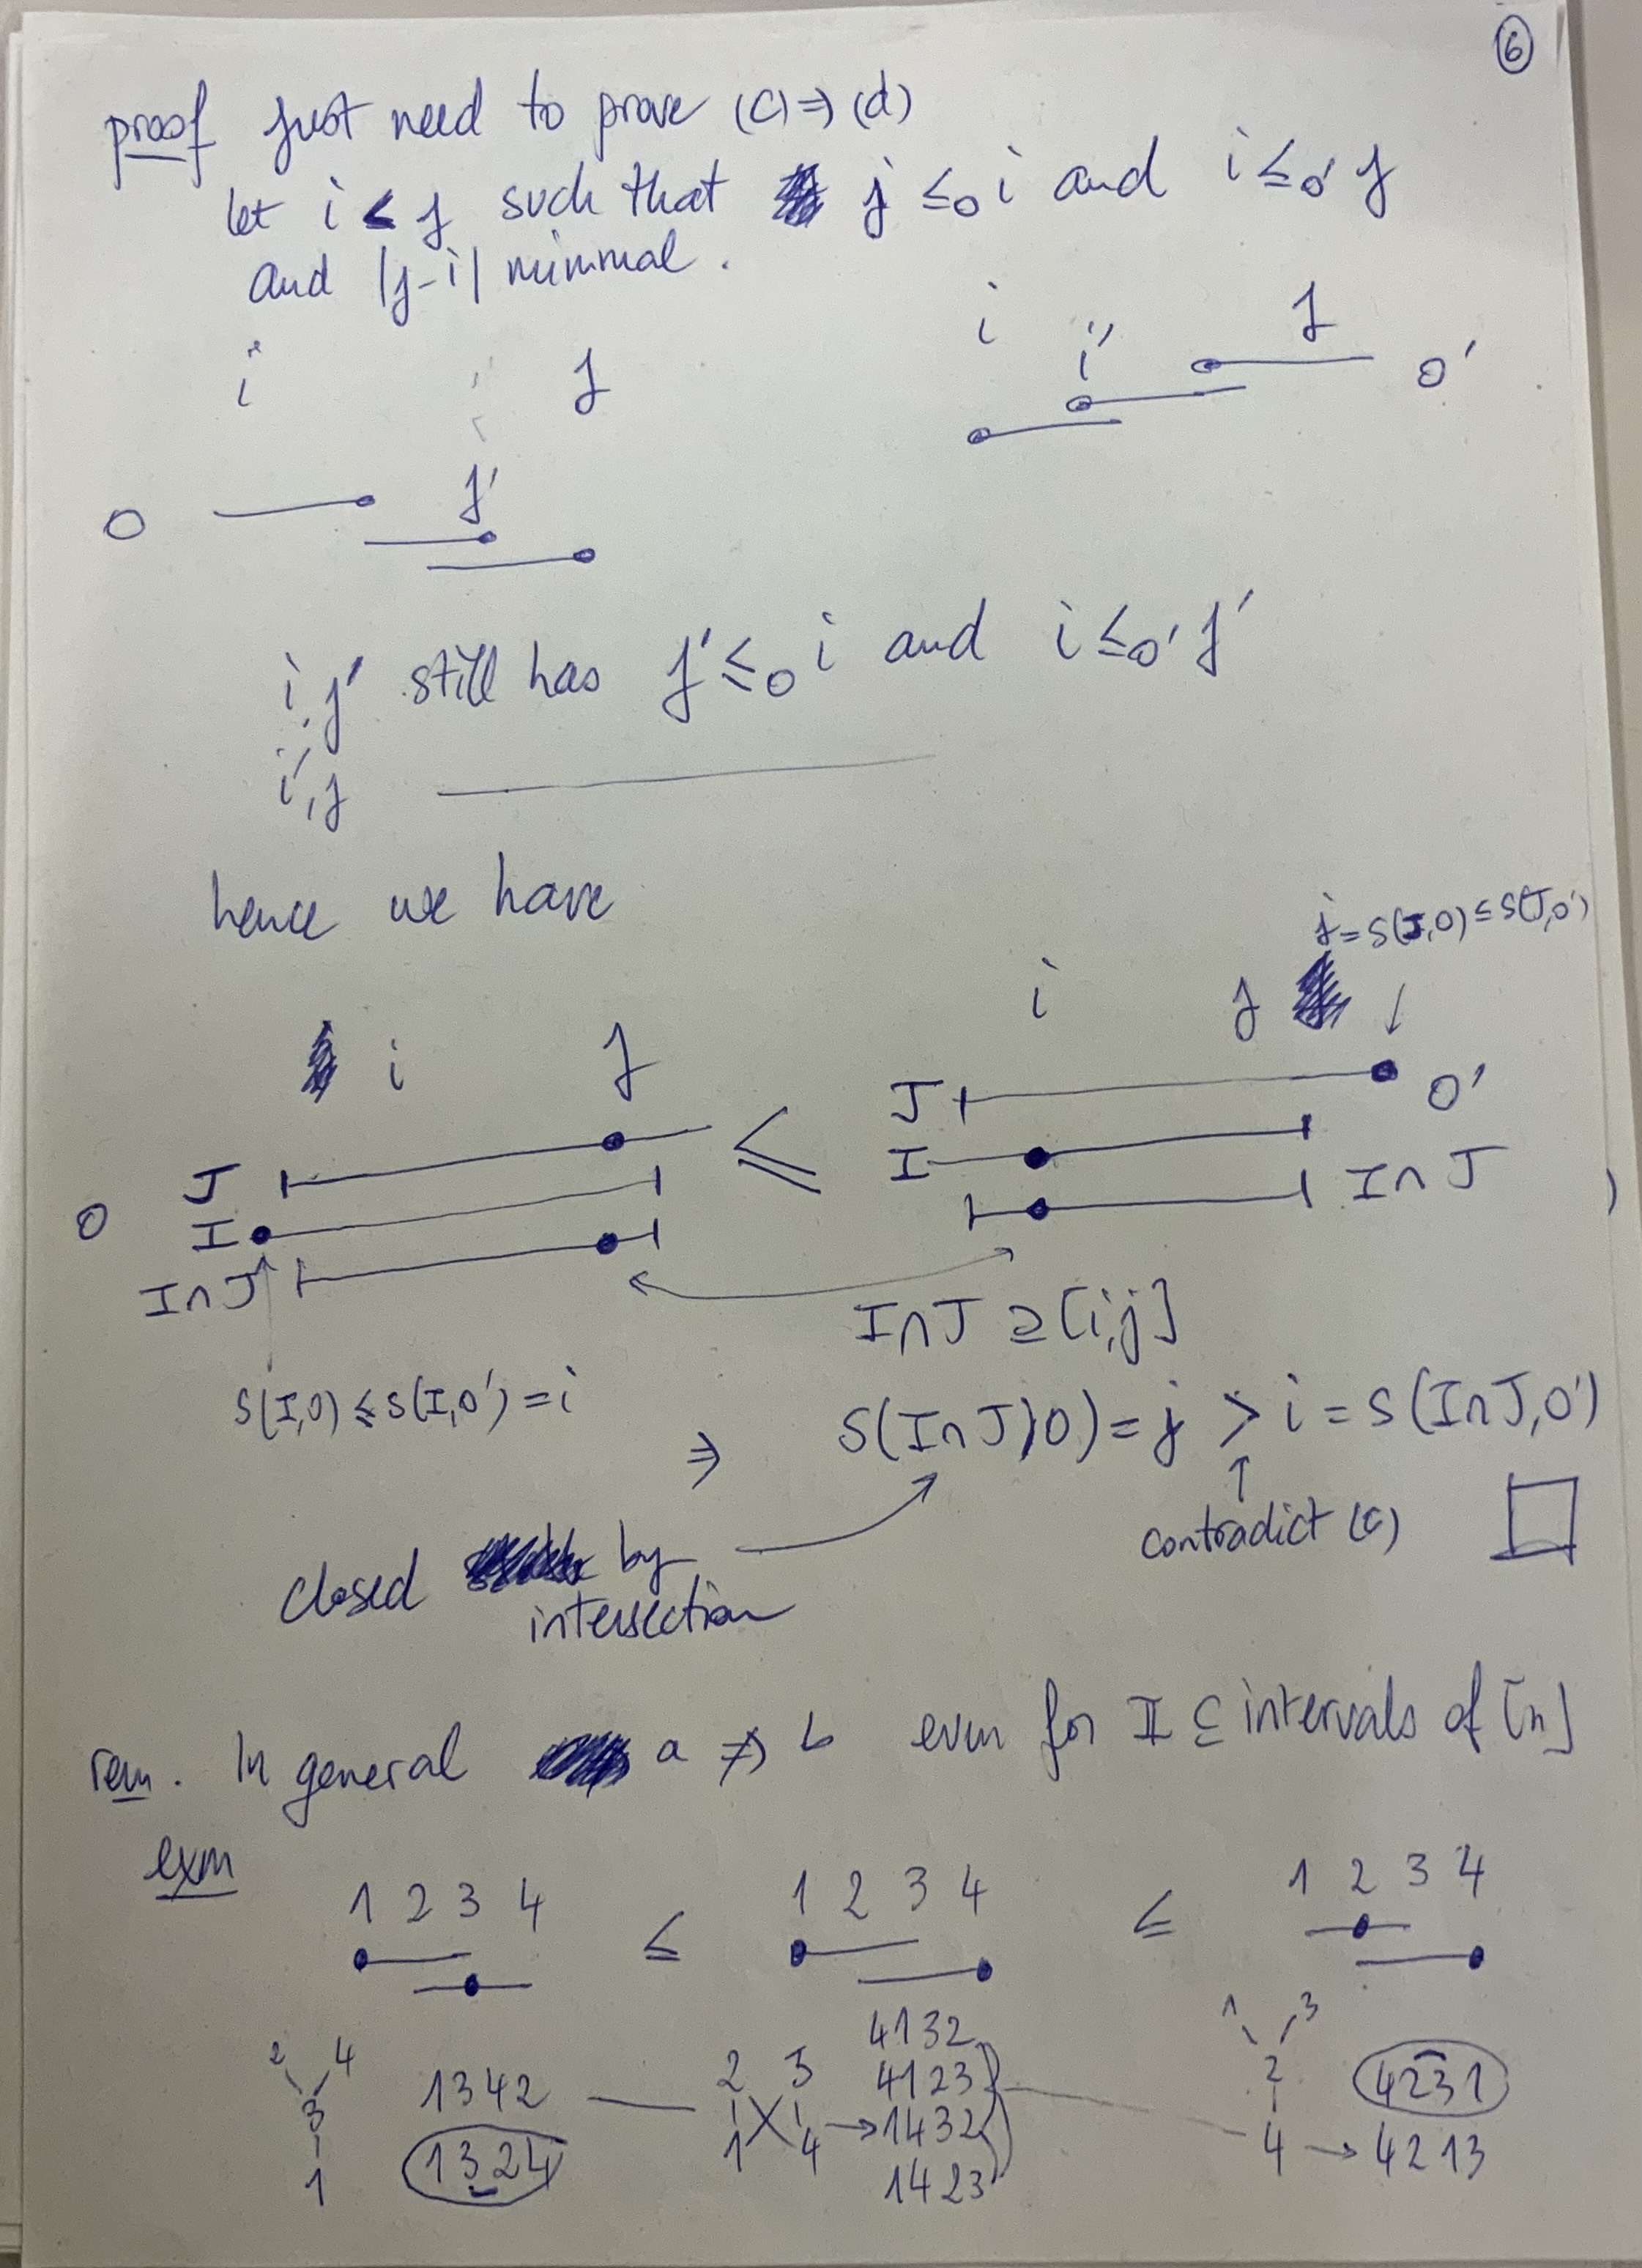 6
proof Just need to prove (c) ⇒ (d)
let i < j such that j ≤O i and i ≤O' j
and |j-i| minimal.
i j
i j
i' O'
O j'
i, j' still has j' ≤O i and i ≤O' j'
i', j
hence we have
j = S(J,O) ≤ S(J,O')
i j
i j
J ≤ J O'
O I I
I∩J I∩J
I∩J ⊇ [i,j]
S(I,O) ≤ S(I,O') = i
⇒ S(I∩J,O) = j > i = S(I∩J,O')
contradict (c)
closed by
intersection
rem. In general a ⇏ b even for II ⊆ intervals of [n]
exm
1 2 3 4 ≤ 1 2 3 4 ≤ 1 2 3 4
2 4
3
1
1342
1324
2 3
1 4
4132
4123
1432
1423
1 3
2
4
4231
4213